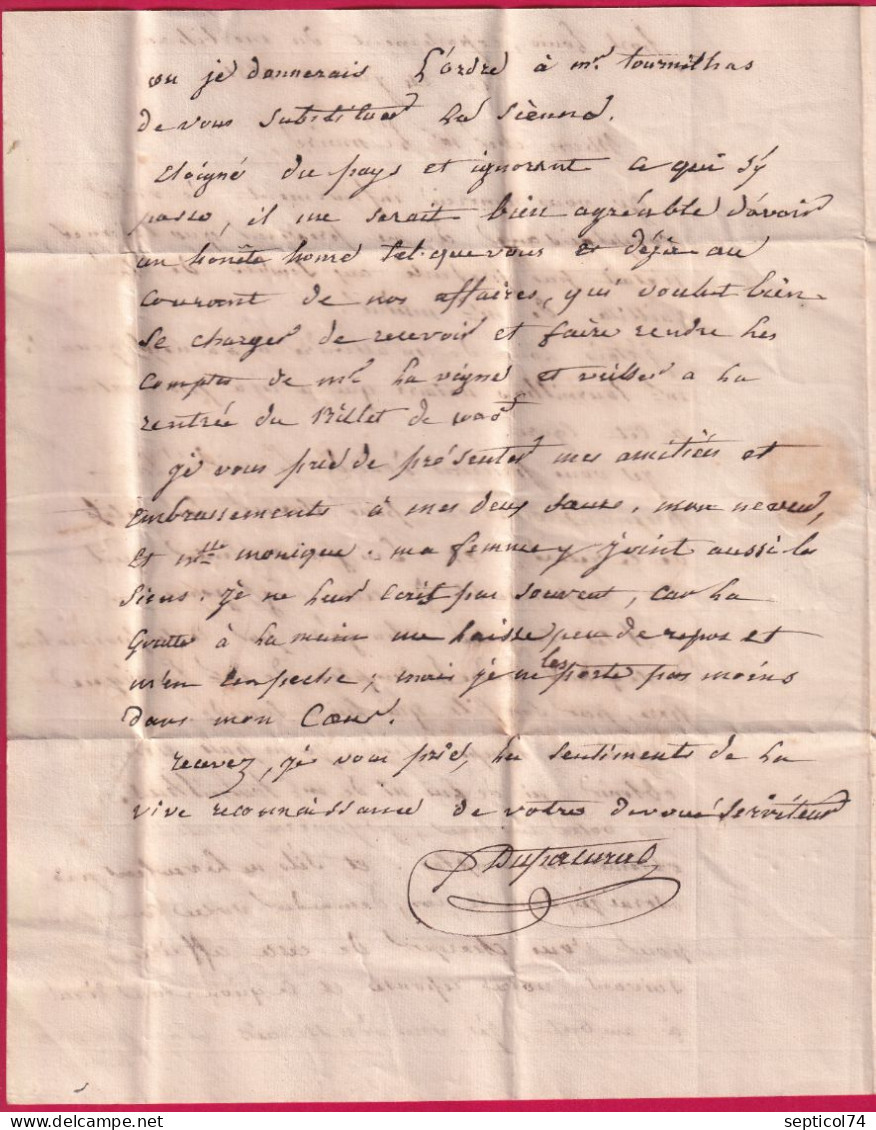 ou je donnerais l'ordre à mr. tournilhas
de vous substituer la Sienne.
Eloigné du pays et ignorant ce qui s'y
passe, il me serait bien agréable d'avoir
un honête home tel que vous et déjà au
courant de nos affaires, qui voulut bien
se charger de recevoir et faire rendre les
comptes de mr la vigne et veiller a la
rentrée du Billet de
je vous prie de présenter mes amitiés et
embrassements à mes deux sœurs, mon neveu,
et mlle monique. ma femme y joint aussi les
siens. je ne leur ecris pas souvent, car la
Goutte à la main me laisse peu de repos et
m'en empeche; mais je ne les porte pas moins
dans mon Cœur.
recevez, je vous prie, les sentiments de la
vive reconnaissance de votre devoué serviteur
Dupatural
delcampe.net
septicol74